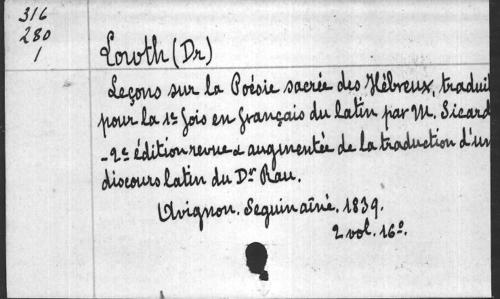 316
280
1
Lowth (Dr)
Leçons sur la Poésie sacrée des Hébreux, traduit
pour la 1re fois en français du latin par M. Sicard
- 2e édition revue & augmentée de la traduction d'un
discours latin du Dr Rau.
Avignon. Seguin aîné. 1839.
2 vol. 16o.